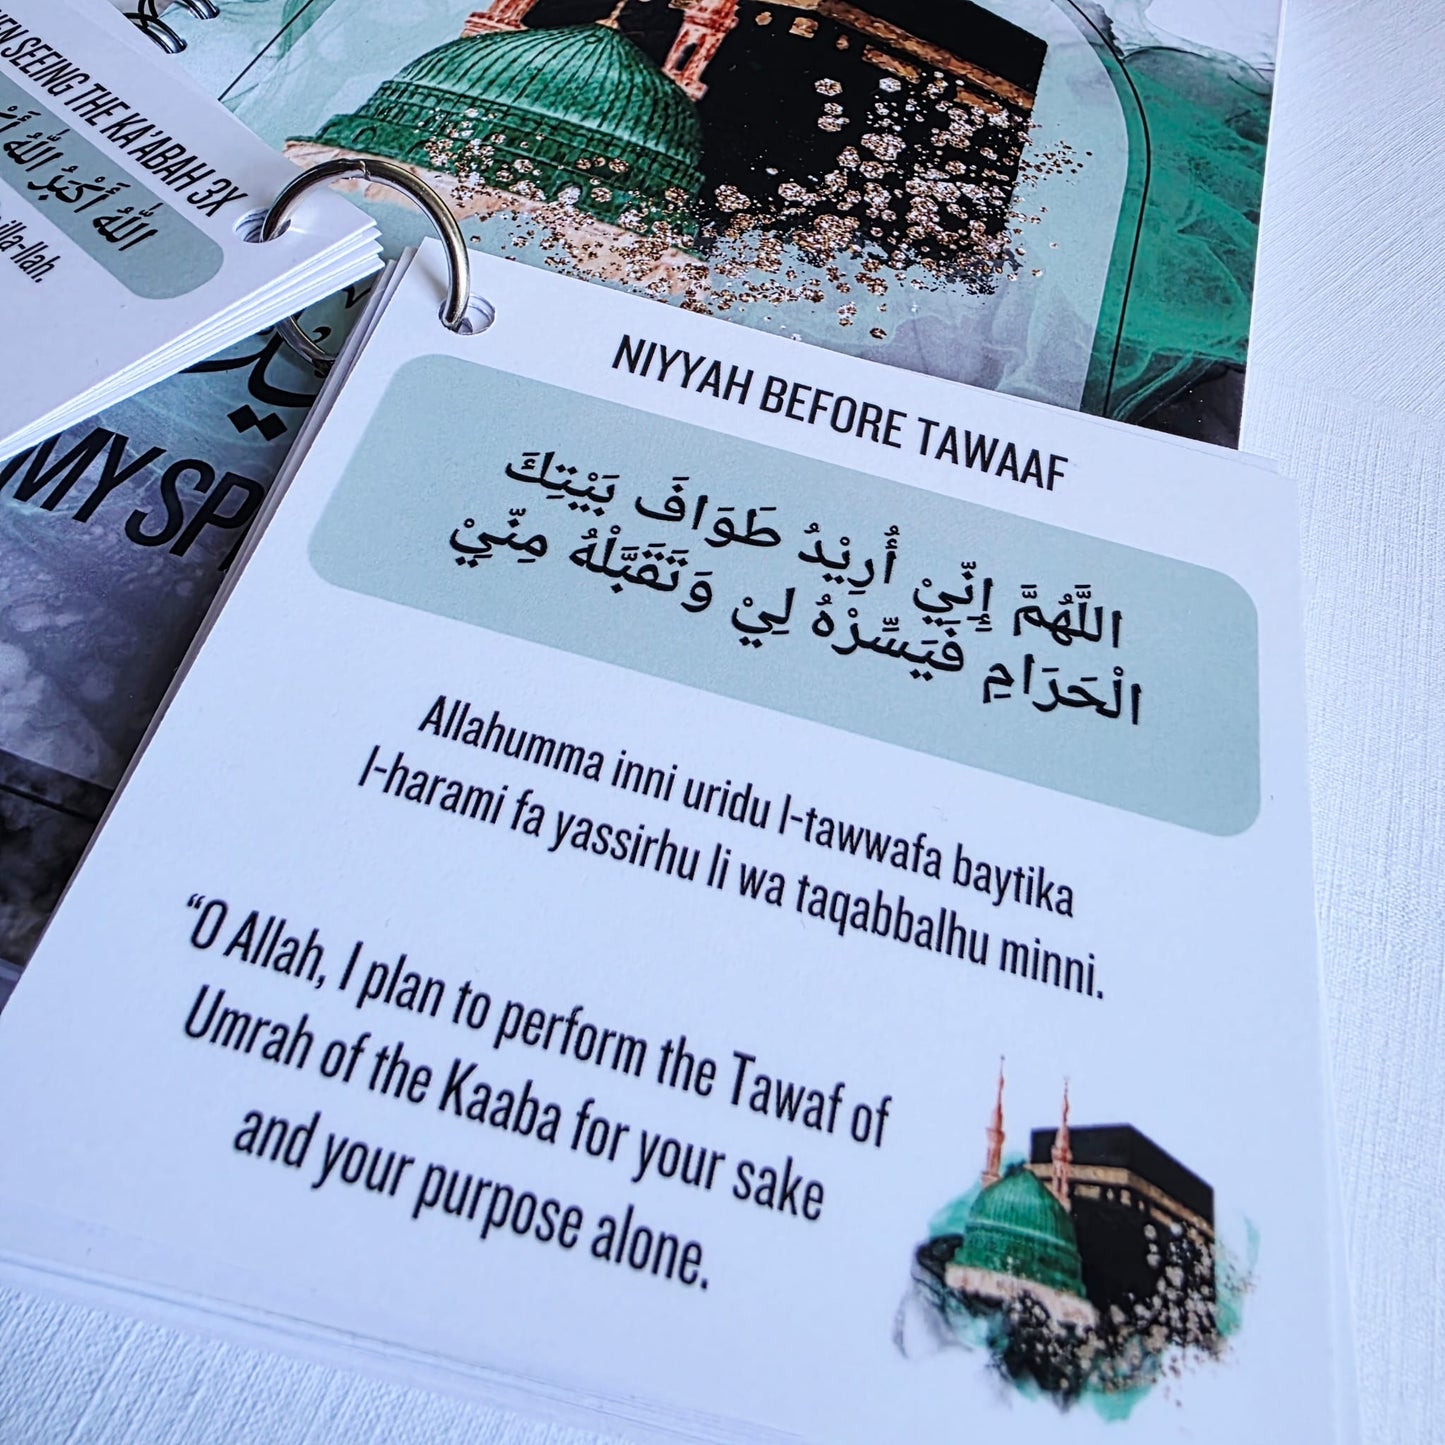 SEEING THE KA'ABAH 3X
اللهُ أَكْبَرُ اللهُ
MY
NIYYAH BEFORE TAWAAF
اللَّهُمَّ إِنِّيْ أُرِيْدُ طَوَافَ بَيْتِكَ
الْحَرَامِ فَيَسِّرْهُ لِيْ وَتَقَبَّلْهُ مِنِّيْ
Allahumma inni uridu l-tawwafa baytika
l-harami fa yassirhu li wa taqabbalhu minni.
“O Allah, I plan to perform the Tawaf of
Umrah of the Kaaba for your sake
and your purpose alone.